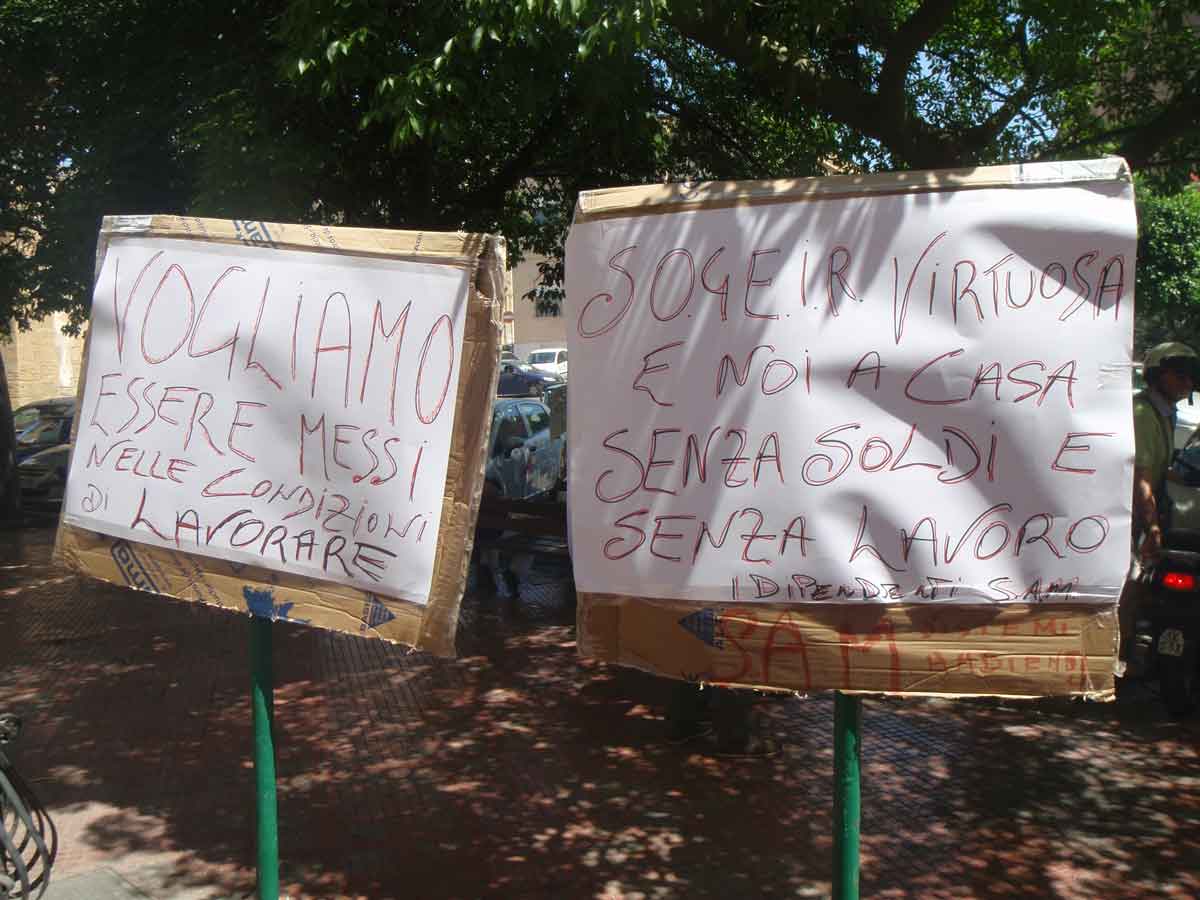 VOGLIAMO
ESSERE MESSI
NELLE CONDIZIONI
DI LAVORARE
SO.GE.I.R. VIRTUOSA
E NOI A CASA
SENZA SOLDI E
SENZA LAVORO
I DIPENDENTI S.AM.
SAM